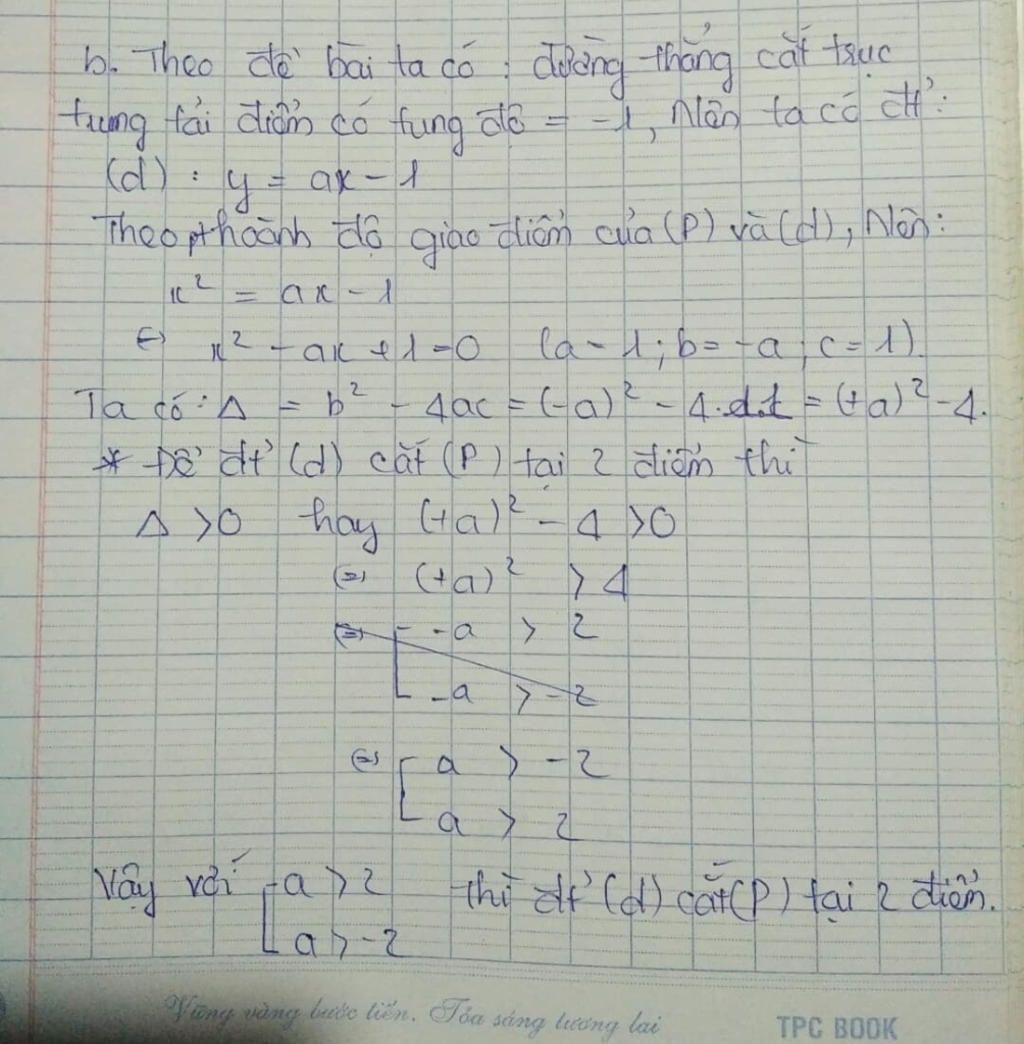 b. Theo đề bài ta có: đường thẳng cắt trục
tung tải điểm có tung độ = -1, Nên ta có đt':
(d) : y = ax - 1
Theo pt hoành độ giao điểm của (P) và (d), Nên:
x² = ax - 1
⇔ x² - ax + 1 = 0 (a = 1; b = -a; c = 1).
Ta có: Δ = b² - 4ac = (-a)² - 4.1.1 = (+a)² - 4.
* Để đt' (d) cắt (P) tại 2 điểm thì
Δ > 0 hay (+a)² - 4 > 0
⇔ (+a)² > 4
⇔ [ -a > 2
-a > -2
⇔ [ a > -2
a > 2
Vậy với [ a > 2 thì đt' (d) cắt (P) tại 2 điểm.
a > -2
Vững vàng bước tiến. Tỏa sáng tương lai
TPC BOOK